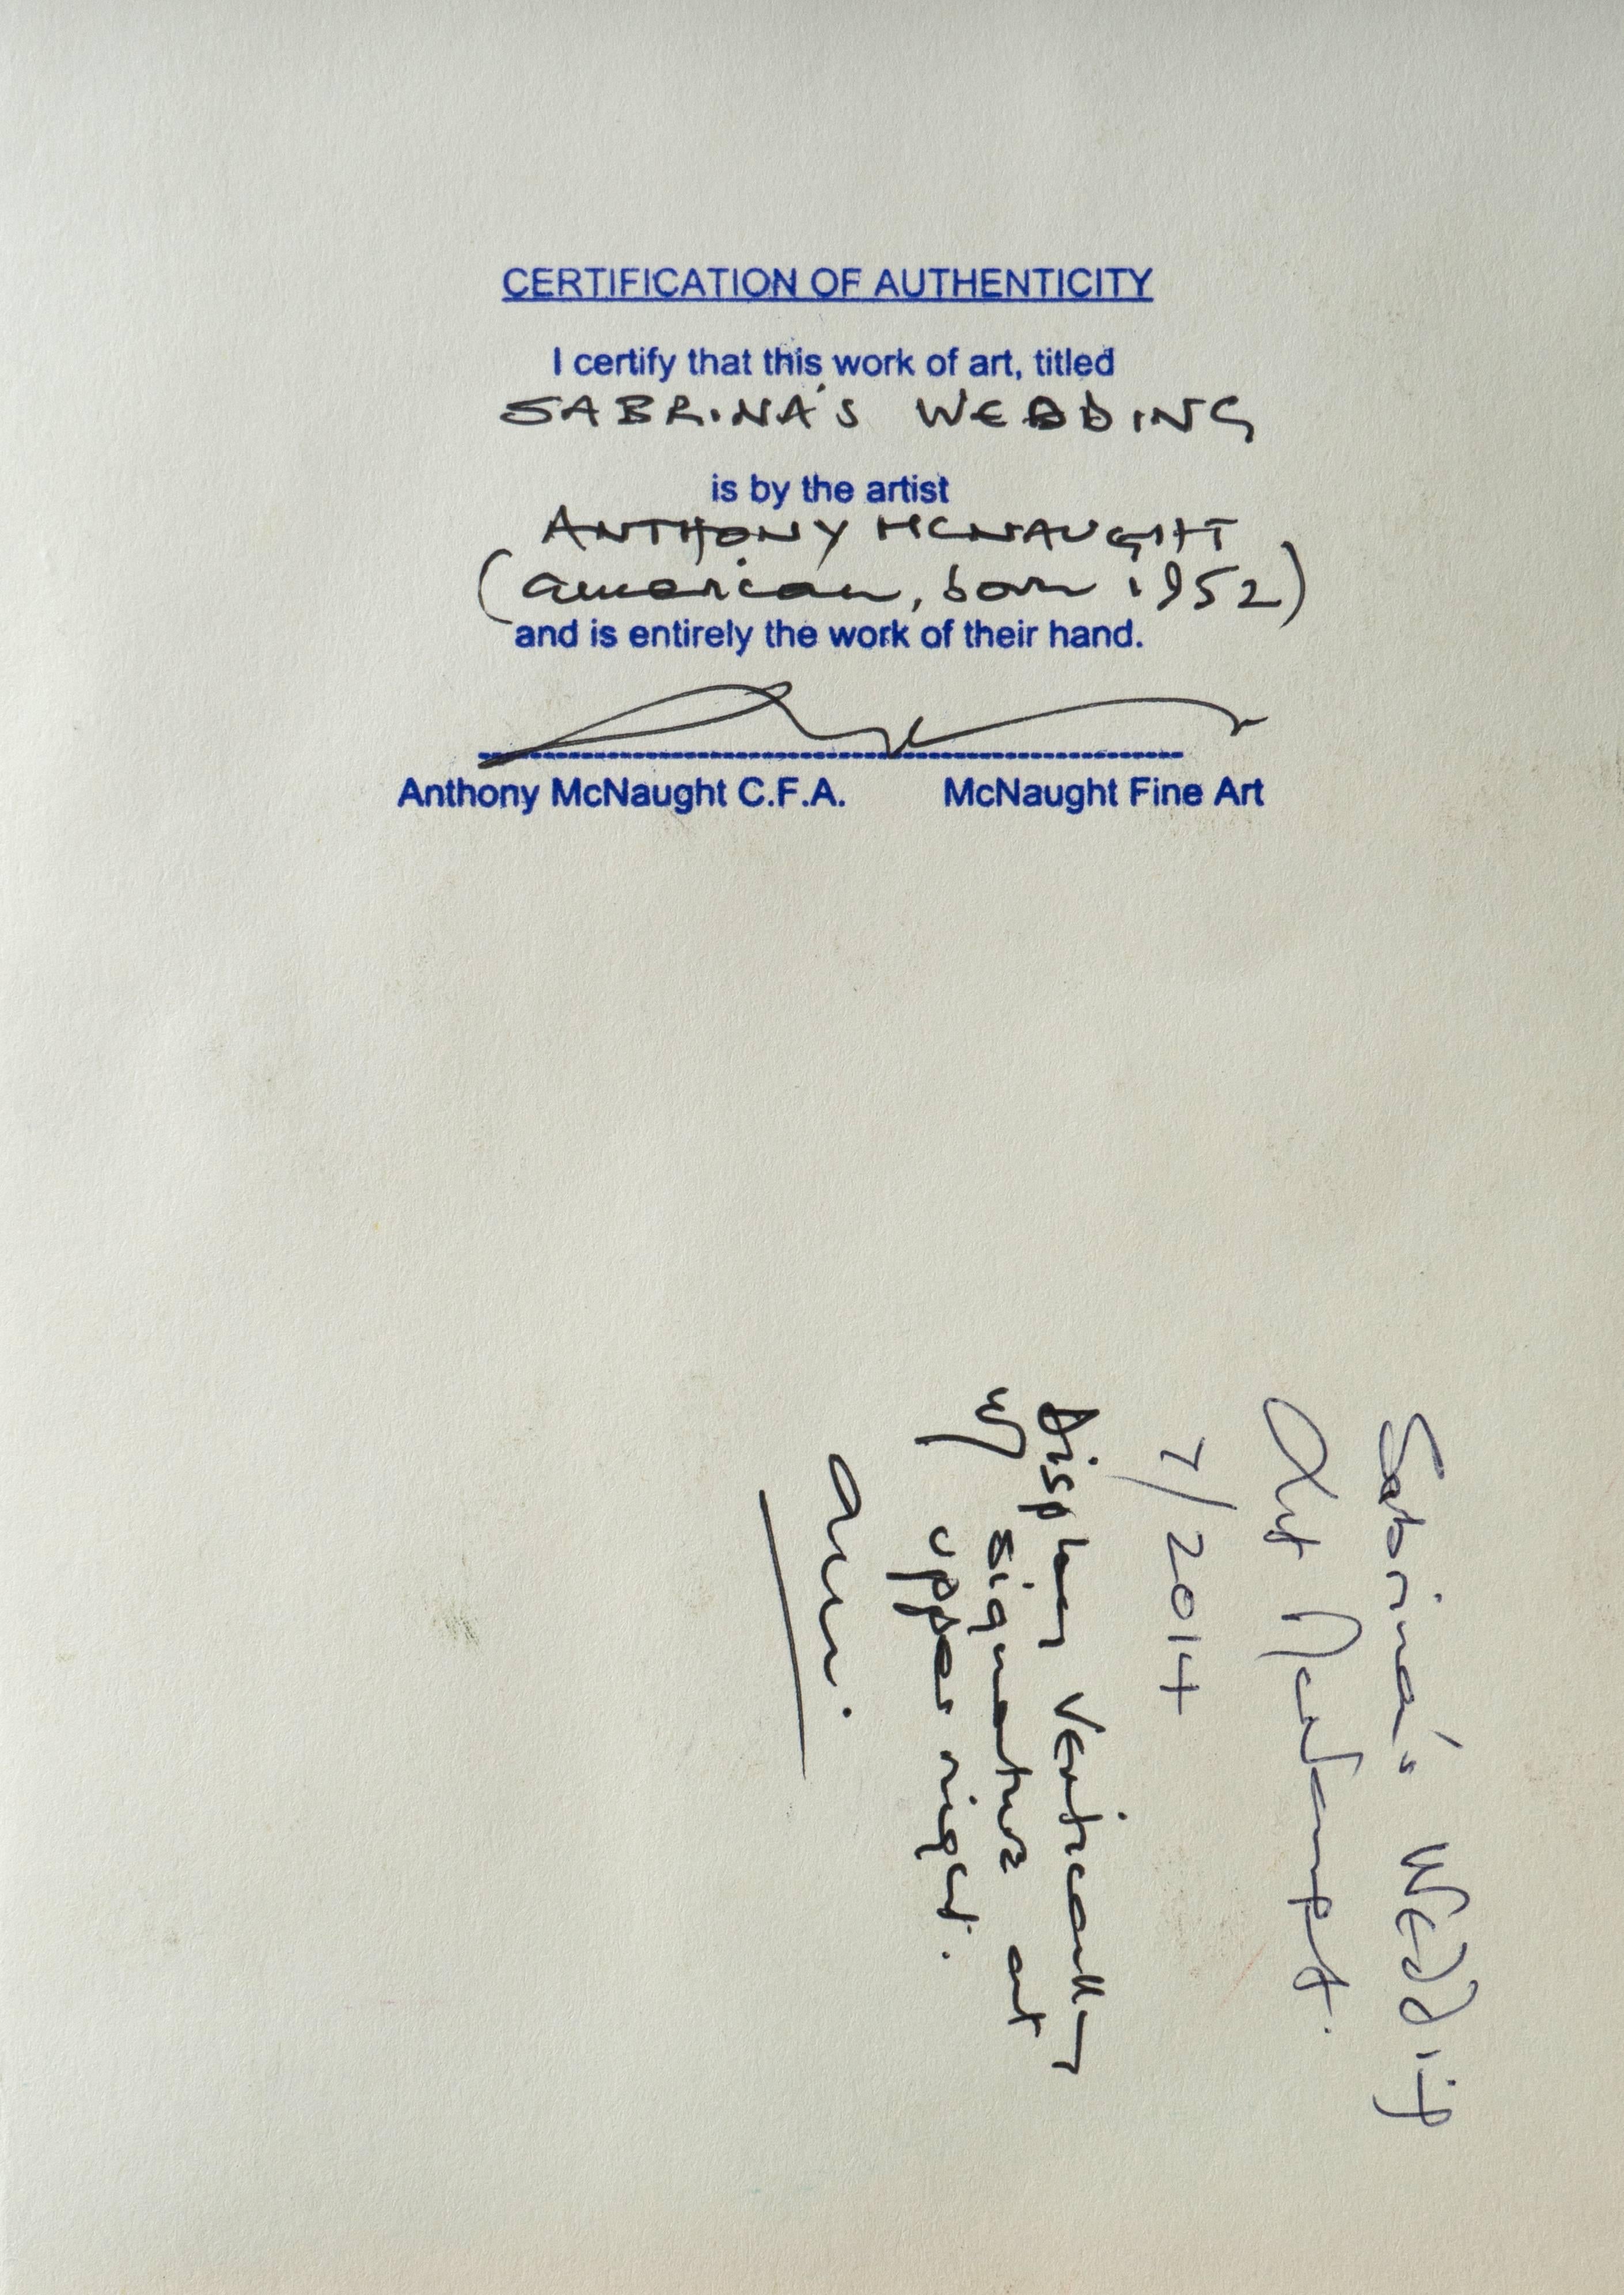 CERTIFICATION OF AUTHENTICITY
I certify that this work of art, titled
SABRINA'S WEDDING
is by the artist
ANTHONY MCNAUGHT
(american, born 1952)
and is entirely the work of their hand.
Anthony McNaught C.F.A. McNaught Fine Art
Sabrina's Wedding
McNaught.
7/2014
Display Vertically
w/ signature at
upper right.